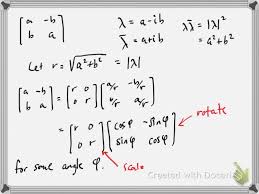 [a -b; b a] λ = a - ib λλ̄ = |λ|²
λ̄ = a + ib = a² + b²
Let r = √(a² + b²) = |λ|
[a -b; b a] = [r 0; 0 r] [a/r -b/r; b/r a/r]
= [r 0; 0 r] [cosφ -sinφ; sinφ cosφ] rotate
for some angle φ. scale
Created with Doceri